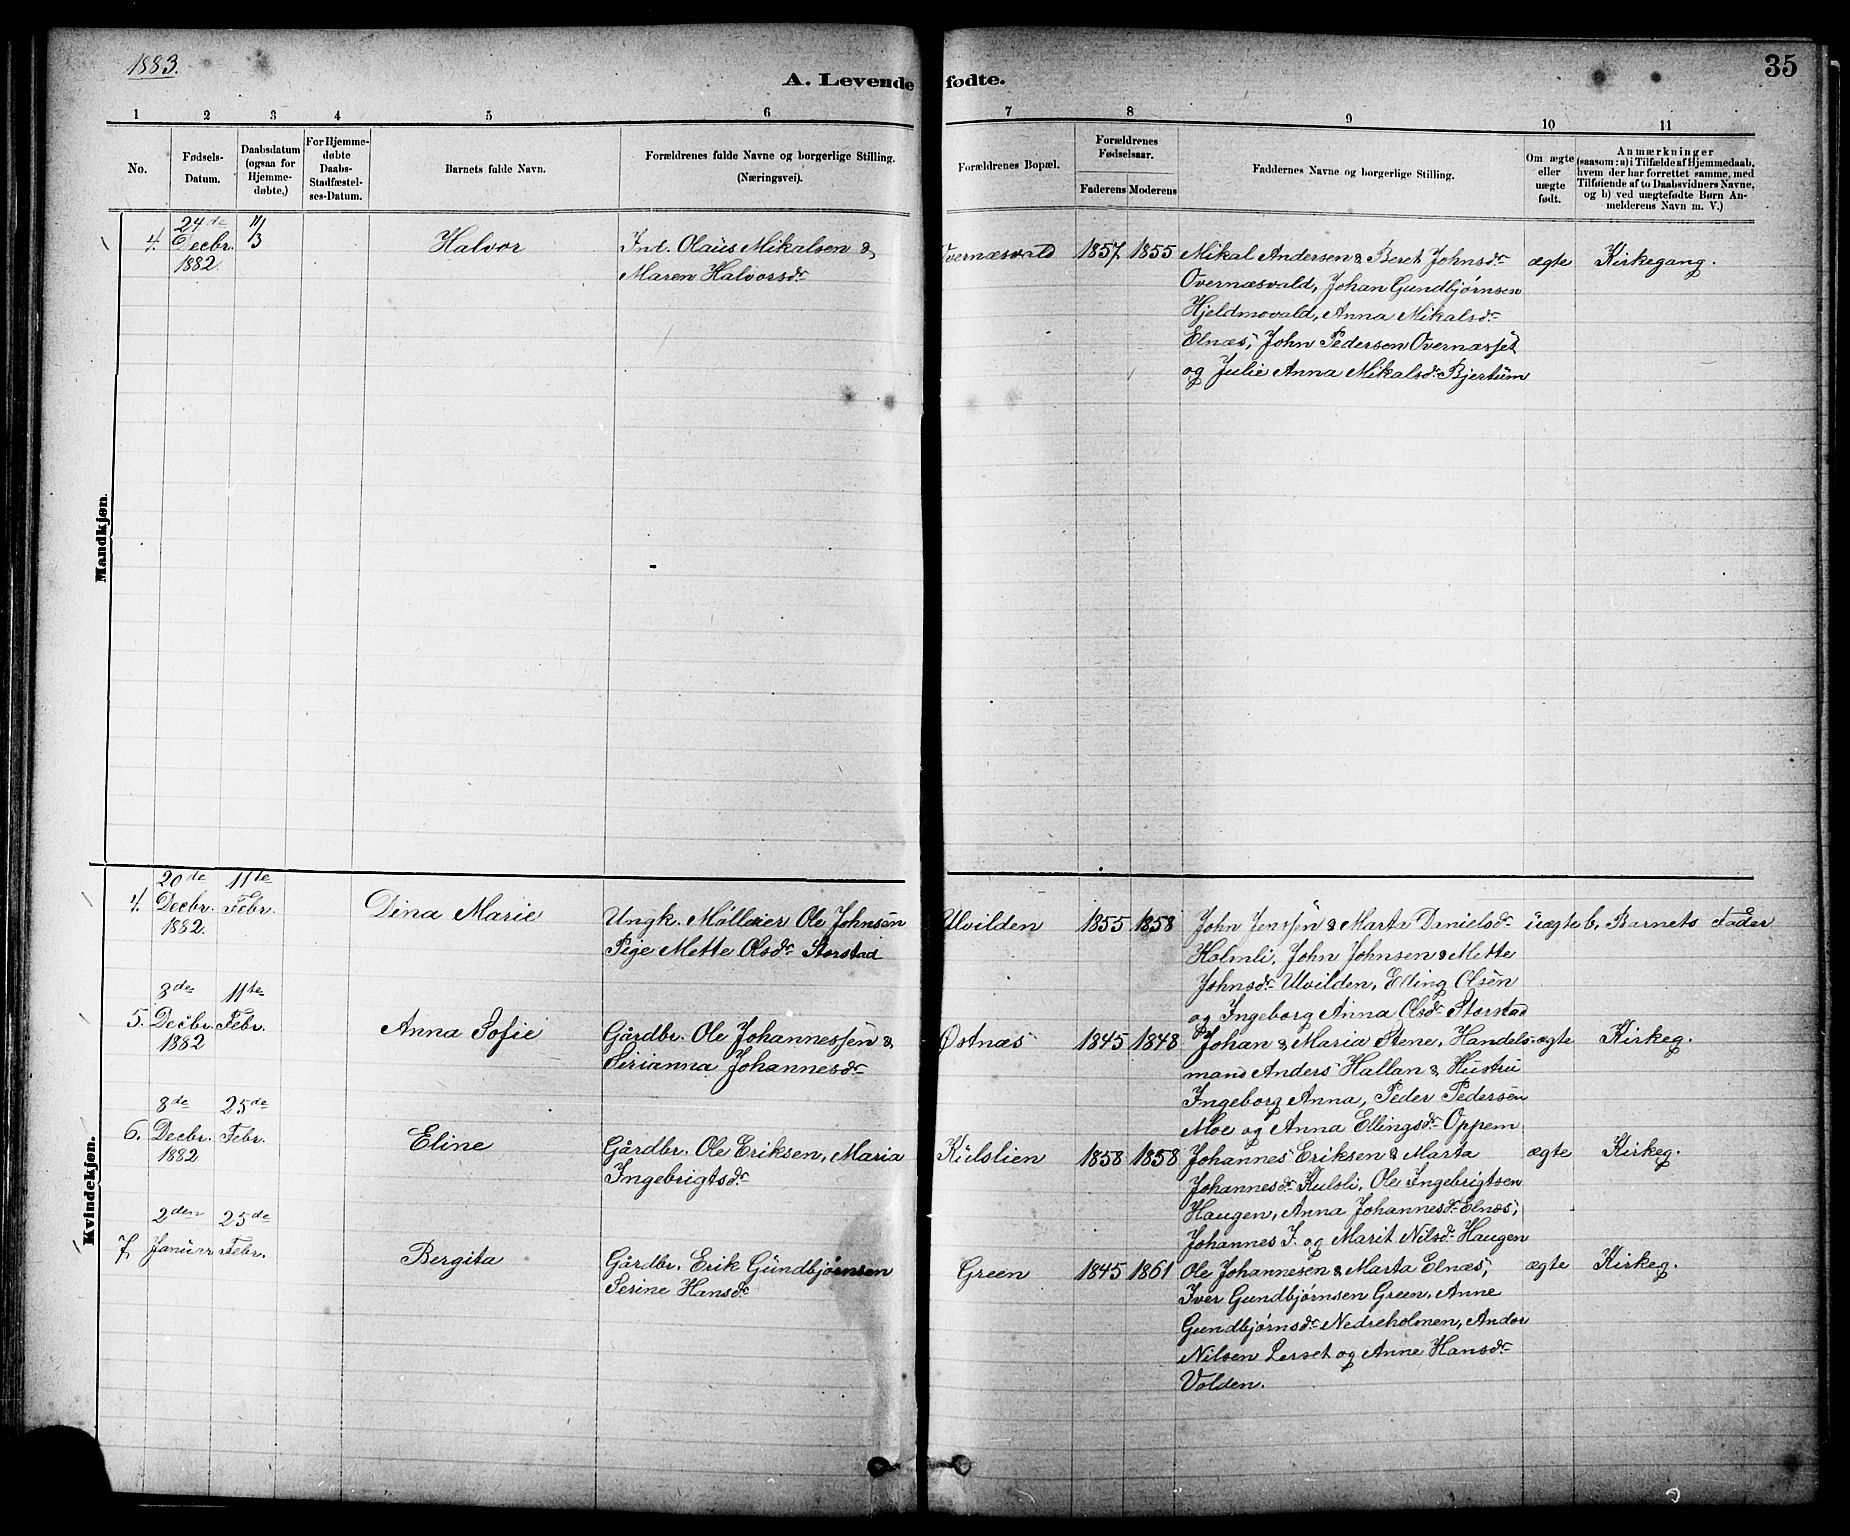 1883.
A. Levende fødte.
35
1 2 3 4 5 6 7 8 9 10 11
No.
Fødsels-
Datum.
Daabsdatum
(ogsaa for
Hjemme-
døbte,)
For Hjemme-
døbte
Daabs-
Stadfæstel-
ses-Datum.
Barnets fulde Navn.
Forældrenes fulde Navne og borgerlige Stilling.
(Næringsvei).
Forældrenes Bopæl.
Forældrenes
Fødselsaar.
Faderens Moderens
Faddernes Navne og borgerlige Stilling.
Om ægte
eller
uægte
født.
Anmærkninger
(saasom: a) i Tilfælde af Hjemmedaab,
hvem der har forrettet samme, med
Tilføiende af to Daabsvidners Navne,
og b) ved uægtefødte Børn An-
melderens Navn m. V.)
Mandkjøn.
4.
24de
Decbr.
1882
11/3
Halvor
Ind. Olaus Mikalsen &
Maren Halvorsdr
Overnæsvald
1857 1855
Mikal Andersen & Beret Johnsdr
Overnæsvald, Johan Gundbjørnsen
Hjeldmovald, Anna Mikalsdr
Elnæs, John Pedersen Overnæsjet
og Julie Anna Mikalsdr Bjertum
ægte
Kirkegang.
Kvindekjøn.
4.
20de
Decbr.
1882.
11te
Febr.
Dina Marie
Ungk. Møllerier Ole Johnsen
Pige Mette Olsdr Storstad
Ulvilden
1855 1858
John Jenssen & Marta Danielsdr
Holmli, John Johnsen & Mette
Johnsdr Ulvilden, Elling Olsen
og Ingeborg Anna Olsdr Storstad
uægte
b, Barnets Fader
5.
3de
Decbr.
1882
11te
Febr.
Anna Sofie
Gårdbr. Ole Johannessen &
Sirianna Johannesdr
Østnæs
1845 1848
Johan & Maria Stene, Handels-
mand Anders Hallan & Hustru
Ingeborg Anna, Peder Pedersen
Moe og Anna Ellingsdr Oppem
ægte
Kirkeg.
6.
8de
Decbr.
1882
25de
Febr.
Eline
Gårdbr. Ole Eriksen, Maria
Ingebrigtsdr
Kulslien
1858 1858
Johannes Eriksen & Marta
Johannesdr Kulsli, Ole Ingebrigtsen
Haugen, Anna Johannesdr Elnæs,
Johannes I. og Marit Nilsdr Haugen
ægte
Kirkeg.
7.
2den
Januar
25de
Febr.
Bergita
Gårdbr. Erik Gundbjørnsen
Serine Hansdr
Green
1845 1861
Ole Johannesen & Marta Elnæs,
Iver Gundbjørnsen Green, Anne
Gundbjørnsdr Nedreholmen, Andor
Nilsen Lerset og Anne Hansdr
Volden.
ægte
Kirkeg.